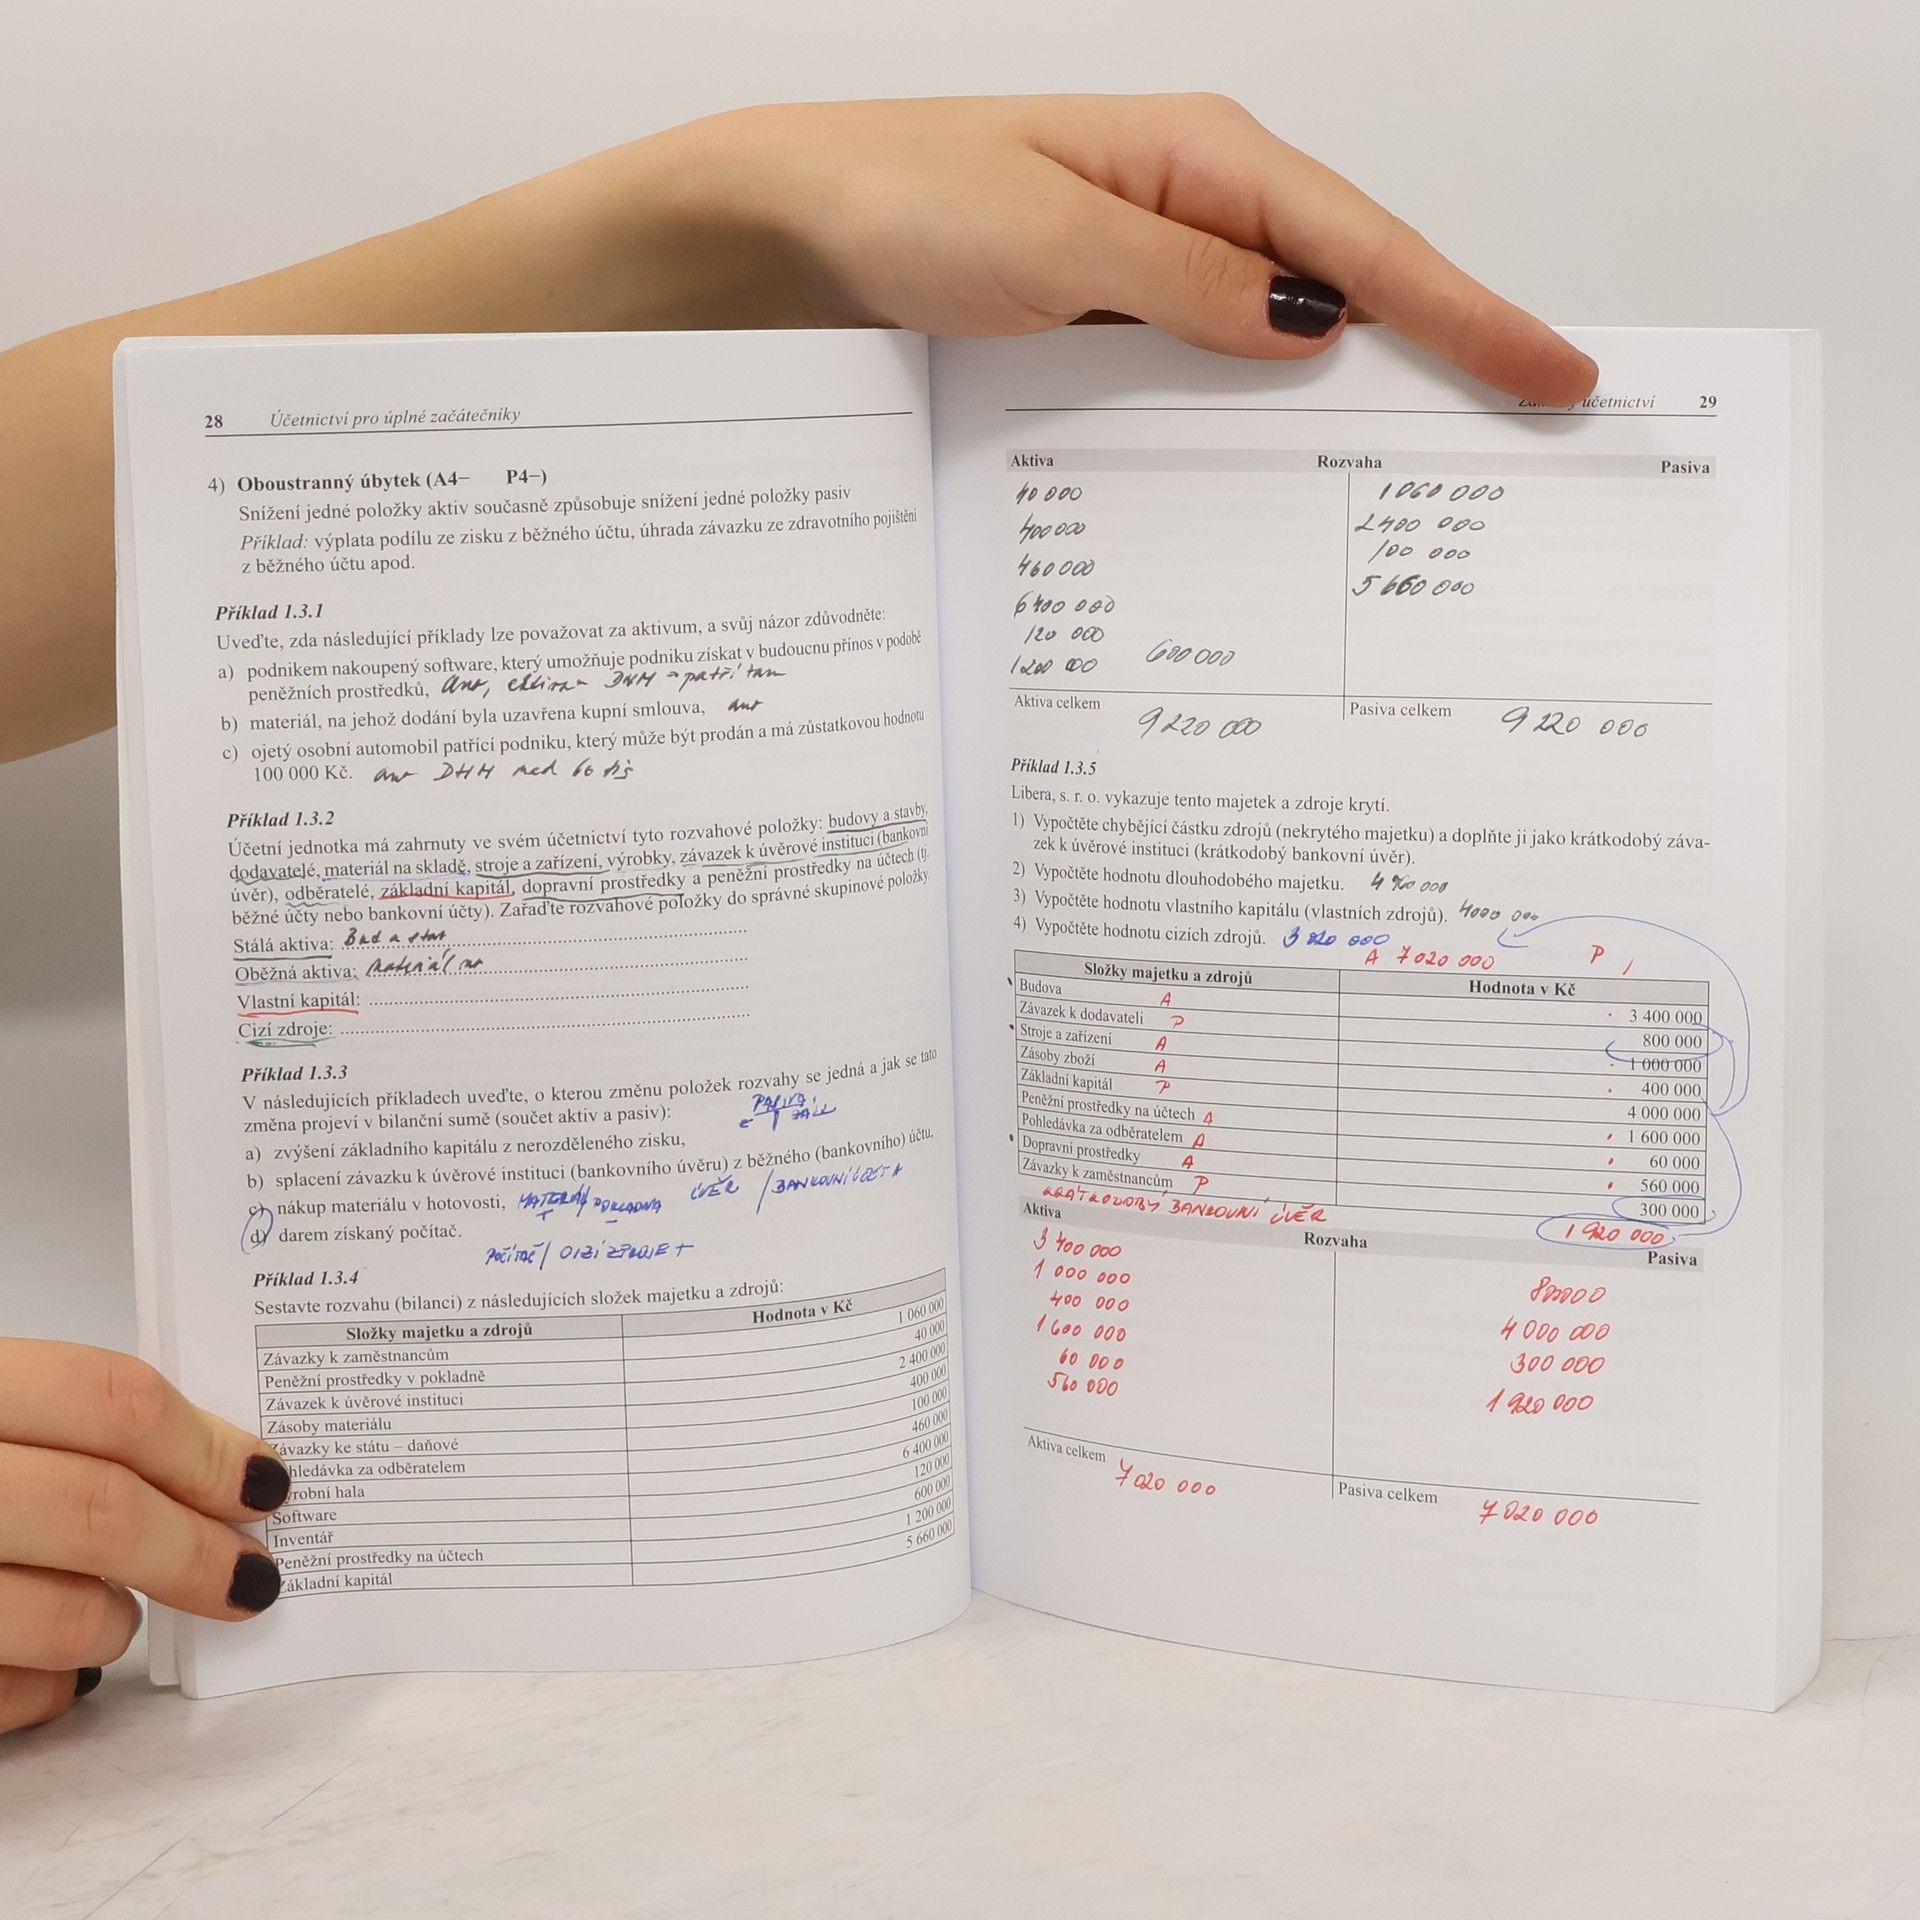 28 Účetnictví pro úplné začátečníky
4) Oboustranný úbytek (A4– P4–)
Snížení jedné položky aktiv současně způsobuje snížení jedné položky pasiv
Příklad: výplata podílu ze zisku z běžného účtu, úhrada závazku ze zdravotního pojištění
z běžného účtu apod.
Příklad 1.3.1
Uveďte, zda následující příklady lze považovat za aktivum, a svůj názor zdůvodněte:
a) podnikem nakoupený software, který umožňuje podniku získat v budoucnu přínos v podobě
peněžních prostředků, DNM patří tam
b) materiál, na jehož dodání byla uzavřena kupní smlouva,
c) ojetý osobní automobil patřící podniku, který může být prodán a má zůstatkovou hodnotu
100 000 Kč. DHM nad 60 tis
Příklad 1.3.2
Účetní jednotka má zahrnuty ve svém účetnictví tyto rozvahové položky: budovy a stavby,
dodavatelé, materiál na skladě, stroje a zařízení, výrobky, závazek k úvěrové instituci (bankovní
úvěr), odběratelé, základní kapitál, dopravní prostředky a peněžní prostředky na účtech (tj.
běžné účty nebo bankovní účty). Zařaďte rozvahové položky do správné skupinové položky.
Stálá aktiva: Bud a stav
Oběžná aktiva: Materiál
Vlastní kapitál:
Cizí zdroje:
Příklad 1.3.3
V následujících příkladech uveďte, o kterou změnu položek rozvahy se jedná a jak se tato
změna projeví v bilanční sumě (součet aktiv a pasiv):
a) zvýšení základního kapitálu z nerozděleného zisku,
b) splacení závazku k úvěrové instituci (bankovního úvěru) z běžného (bankovního) účtu,
ÚVĚR / BANKOVNÍ
c) nákup materiálu v hotovosti, MATERIÁL / POKLADNA
d) darem získaný počítač.
POČÍTAČ / CIZÍ ZDROJE +
Příklad 1.3.4
Sestavte rozvahu (bilanci) z následujících složek majetku a zdrojů:
Složky majetku a zdrojů Hodnota v Kč
Závazky k zaměstnancům 1 060 000
Peněžní prostředky v pokladně 40 000
Závazek k úvěrové instituci 2 400 000
Zásoby materiálu 400 000
Závazky ke státu – daňové 100 000
hledávka za odběratelem 460 000
robní hala 6 400 000
Software 120 000
Inventář 600 000
Peněžní prostředky na účtech 1 200 000
Základní kapitál 5 660 000
účetnictví 29
Aktiva Rozvaha Pasiva
40 000 1 060 000
400 000 2 400 000
460 000 100 000
6 400 000 5 660 000
120 000
1 200 000 600 000
Aktiva celkem 9 220 000 Pasiva celkem 9 220 000
Příklad 1.3.5
Libera, s. r. o. vykazuje tento majetek a zdroje krytí.
1) Vypočtěte chybějící částku zdrojů (nekrytého majetku) a doplňte ji jako krátkodobý záva-
zek k úvěrové instituci (krátkodobý bankovní úvěr).
2) Vypočtěte hodnotu dlouhodobého majetku.
3) Vypočtěte hodnotu vlastního kapitálu (vlastních zdrojů). 4000 000
4) Vypočtěte hodnotu cizích zdrojů. 3 020 000
A 7 020 000 P
Složky majetku a zdrojů Hodnota v Kč
Budova A 3 400 000
Závazek k dodavateli P 800 000
Stroje a zařízení A 1 000 000
Zásoby zboží A 400 000
Základní kapitál P 4 000 000
Peněžní prostředky na účtech A 1 600 000
Pohledávka za odběratelem A 60 000
Dopravní prostředky A 560 000
Závazky k zaměstnancům P 300 000
KRÁTKODOBÝ BANKOVNÍ ÚVĚR 1 920 000
Aktiva Rozvaha Pasiva
3 400 000 800000
1 000 000 4 000 000
400 000 300 000
1 600 000 1 920 000
60 000
560 000
Aktiva celkem 7 020 000 Pasiva celkem 7 020 000